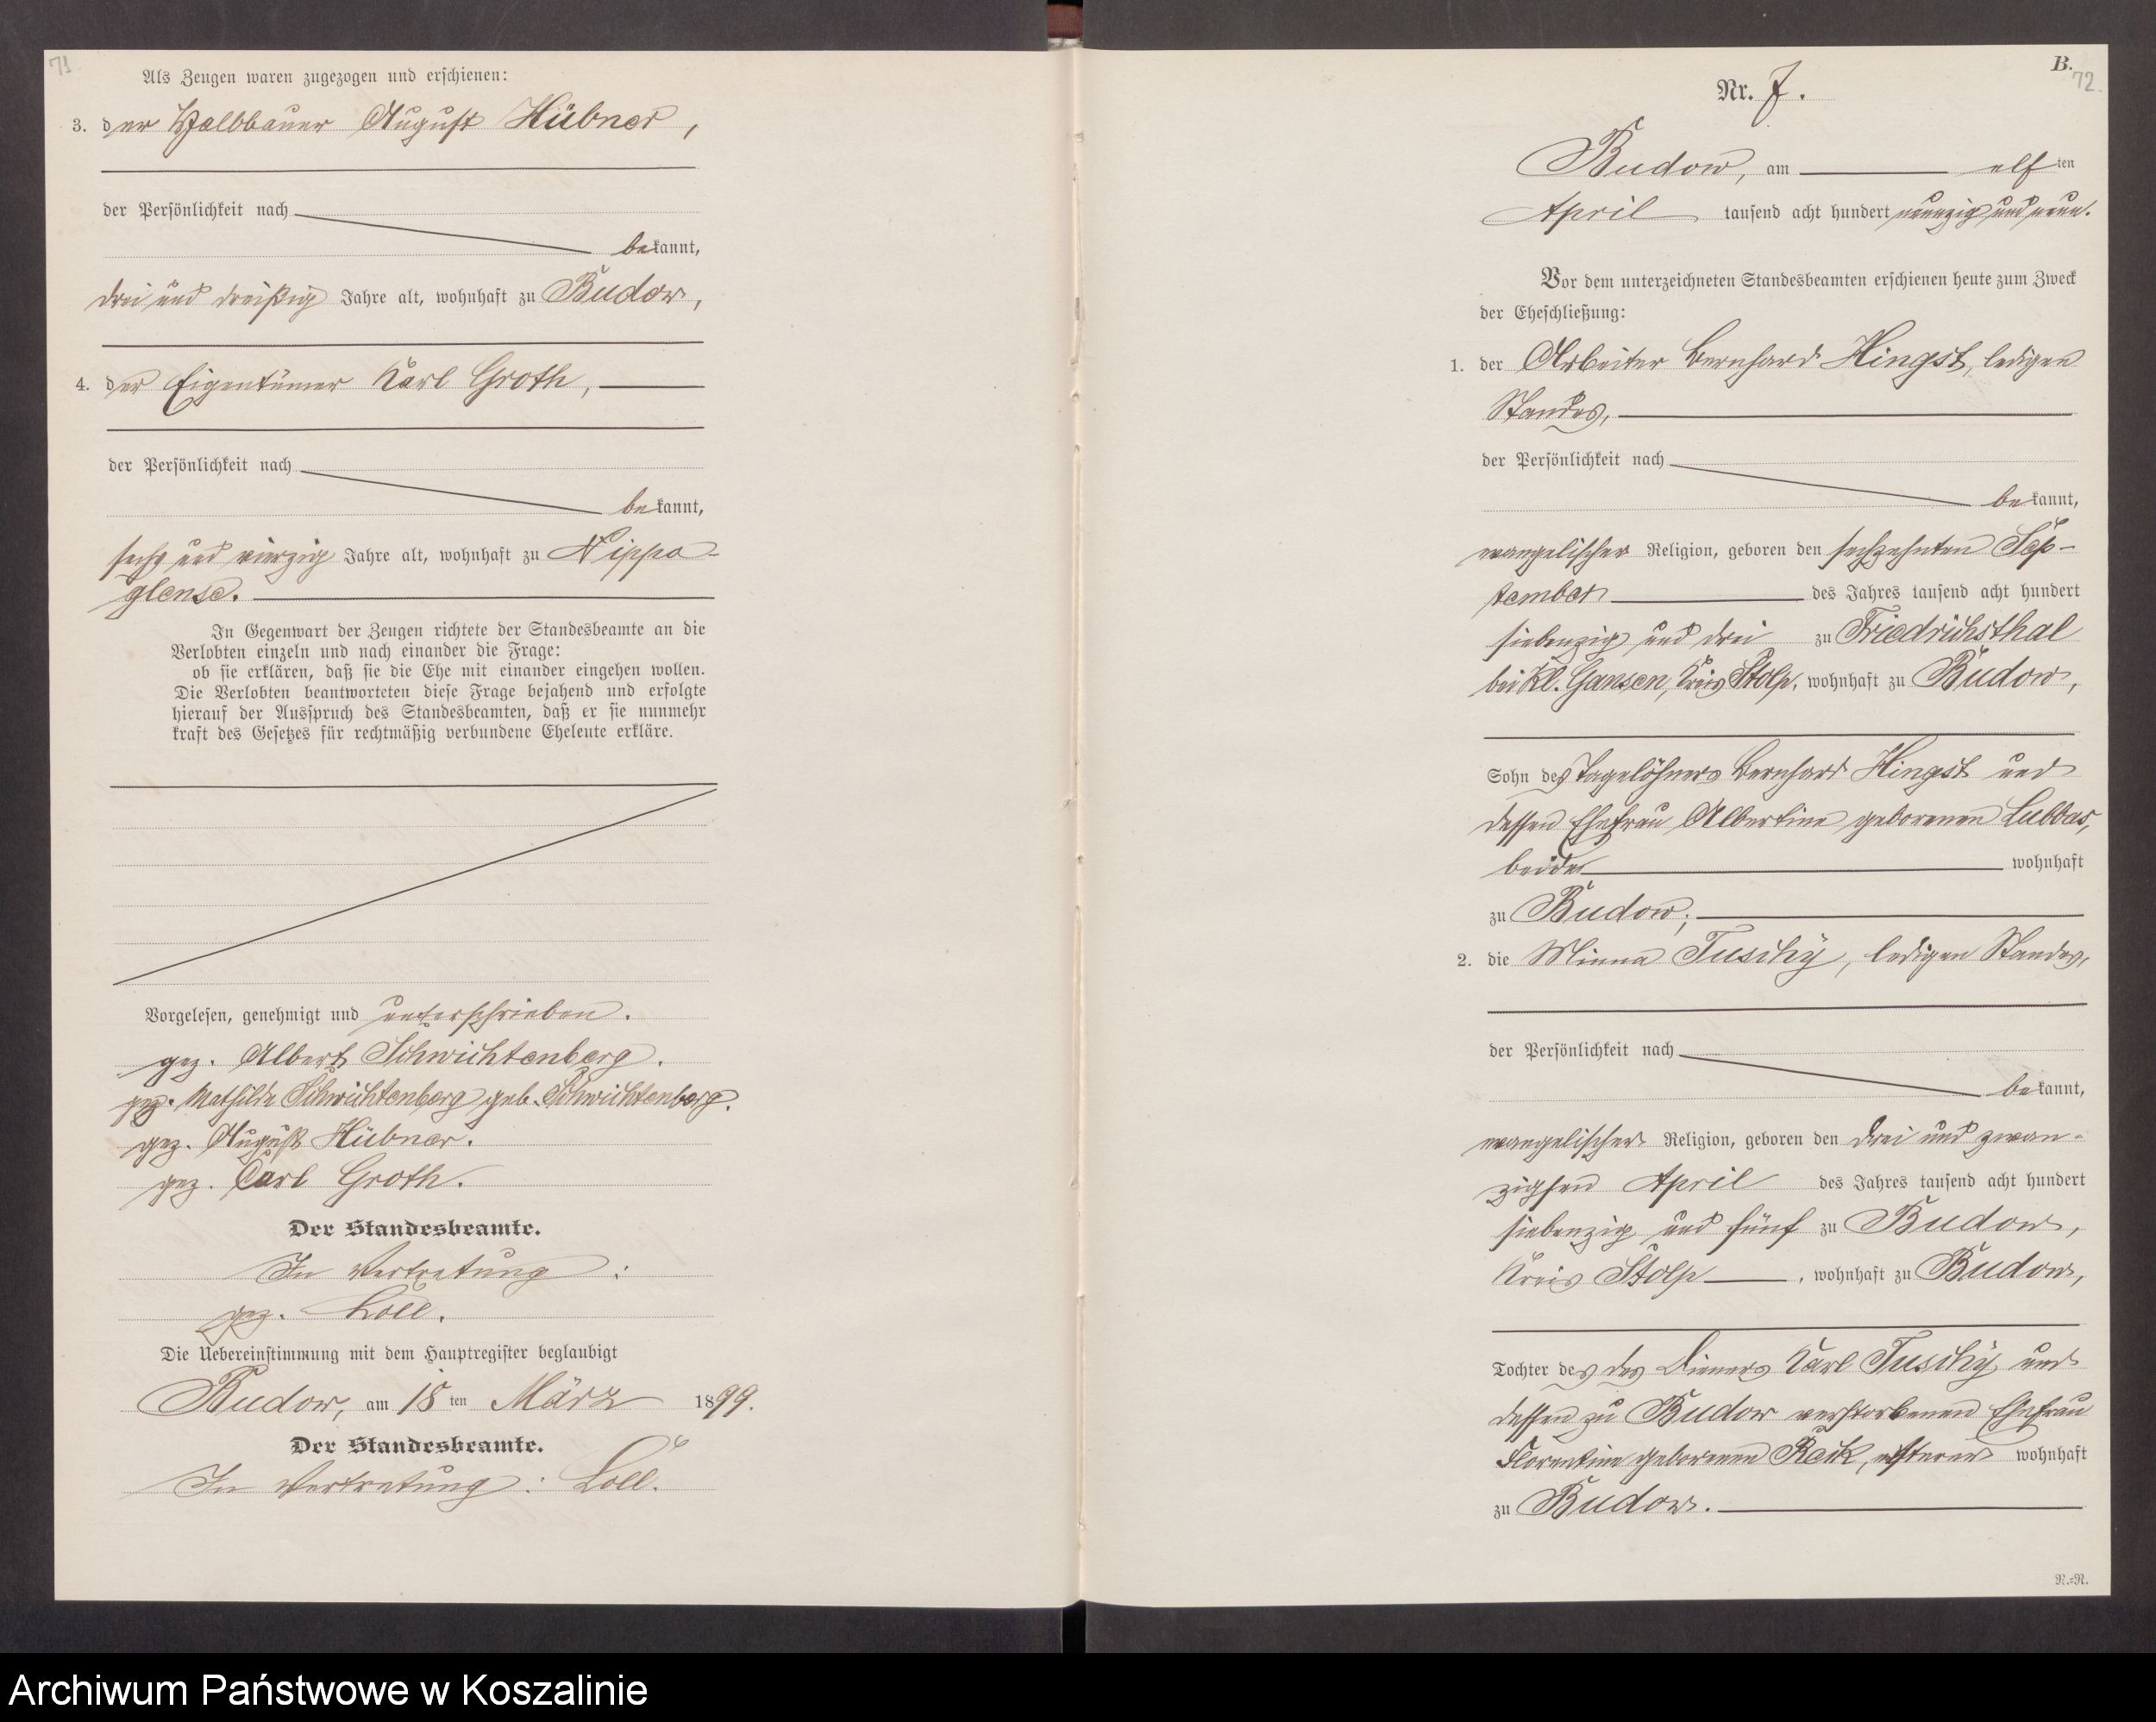 71
Als Zeugen waren zugezogen und erschienen:
3. der Halbbauer August Hübner,
der Persönlichkeit nach
bekannt,
drei und dreißig Jahre alt, wohnhaft zu Budow,
4. der Eigentümer Karl Groth,
der Persönlichkeit nach
bekannt,
sechs und vierzig Jahre alt, wohnhaft zu Nippo-
glense.
In Gegenwart der Zeugen richtete der Standesbeamte an die
Verlobten einzeln und nach einander die Frage:
ob sie erklären, daß sie die Ehe mit einander eingehen wollen.
Die Verlobten beantworteten diese Frage bejahend und erfolgte
hierauf der Ausspruch des Standesbeamten, daß er sie nunmehr
kraft des Gesetzes für rechtmäßig verbundene Eheleute erkläre.
Vorgelesen, genehmigt und unterschrieben.
gez. Albert Schwichtenberg.
gez. Mathilde Schwichtenberg geb. Schwichtenberg.
gez. August Hübner.
gez. Carl Groth.
Der Standesbeamte.
In Vertretung:
gez. Loll.
Die Uebereinstimmung mit dem Hauptregister beglaubigt
Budow, am 18 ten März 1899.
Der Standesbeamte.
In Vertretung: Loll.
B.
72.
Nr. 7.
Budow, am elf ten
April tausend acht hundert neunzig und neun.
Vor dem unterzeichneten Standesbeamten erschienen heute zum Zweck
der Eheschließung:
1. der Arbeiter Bernhard Hingst, ledigen
Standes,
der Persönlichkeit nach
bekannt,
evangelischer Religion, geboren den sechzehnten Sep-
tember des Jahres tausend acht hundert
siebenzig und drei zu Friedrichsthal
bei Kl. Gansen, Kreis Stolp, wohnhaft zu Budow,
Sohn des Tagelöhners Bernhard Hingst und
dessen Ehefrau Albertine geborenen Lubbas,
beide wohnhaft
zu Budow;
2. die Minna Tuschy, ledigen Standes,
der Persönlichkeit nach
bekannt,
evangelischer Religion, geboren den drei und zwan-
zigsten April des Jahres tausend acht hundert
siebenzig und fünf zu Budow,
Kreis Stolp, wohnhaft zu Budow,
Tochter des des Dieners Karl Tuschy und
dessen zu Budow verstorbenen Ehefrau
Florentine geborenen Reik, ersterer wohnhaft
zu Budow.
N.=N.
Archiwum Państwowe w Koszalinie